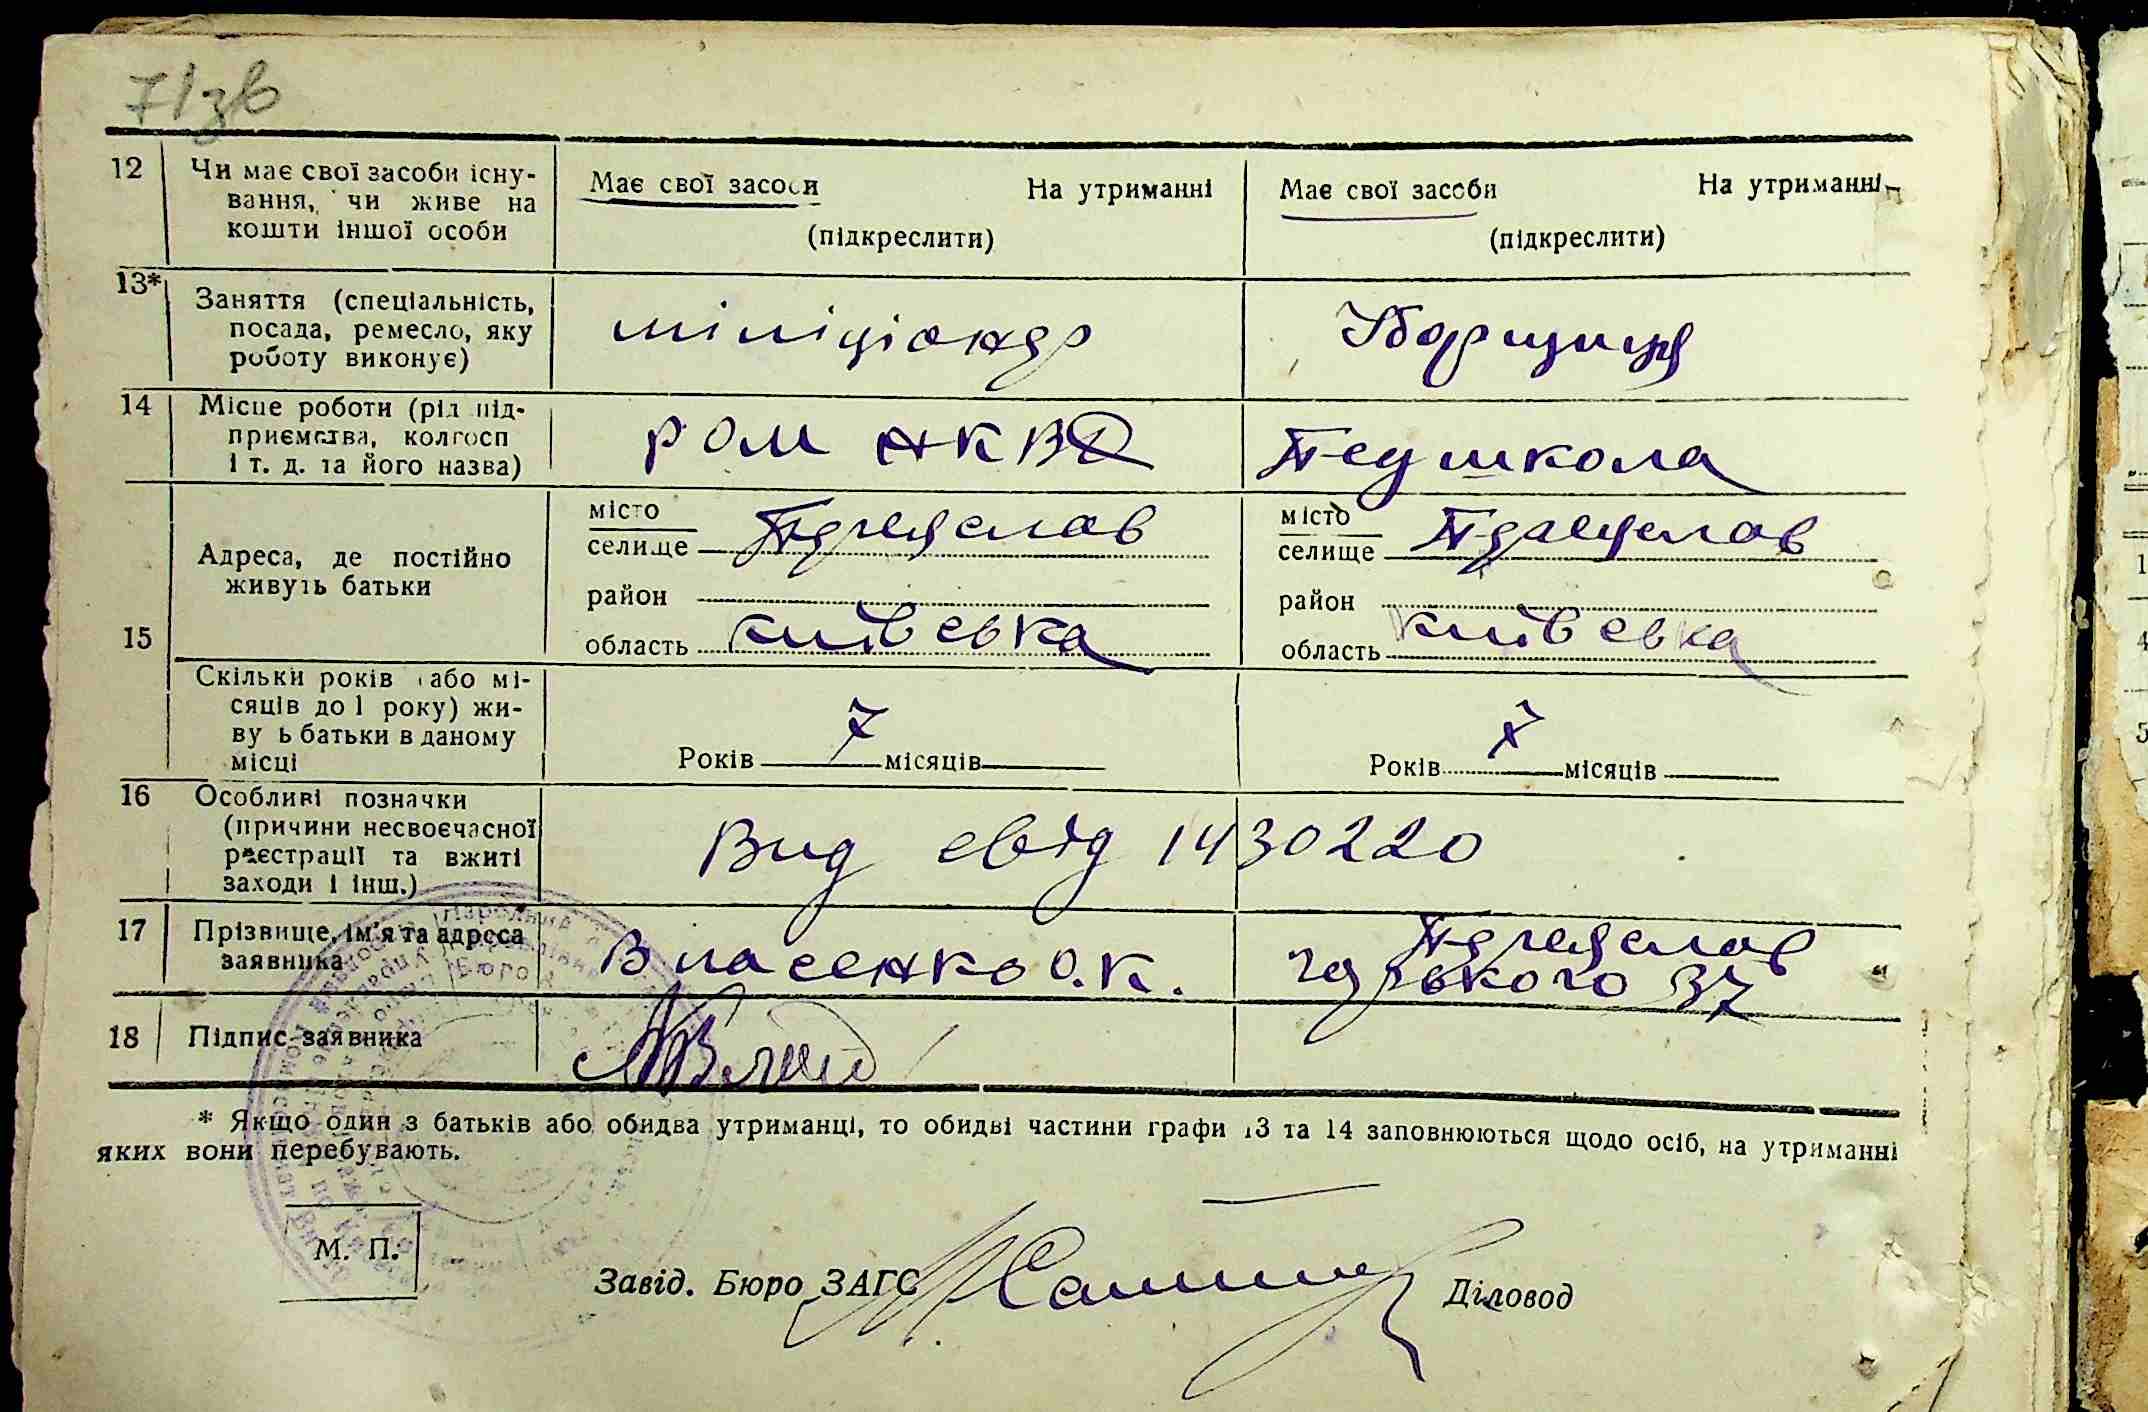 71зв
12 Чи має свої засоби існу-
вання, чи живе на
кошти іншої особи
Має свої засоби На утриманні
(підкреслити)
Має свої засоби На утриманні
(підкреслити)
13* Заняття (спеціальність,
посада, ремесло, яку
роботу виконує)
міліціонер
Уборщиця
14 Місце роботи (рід під-
приємства, колгосп
і т. д. та його назва)
РОМ НКВД
Педшкола
15 Адреса, де постійно
живуть батьки
місто
селище Переяслав
район
область Київська
місто
селище Переяслав
район
область Київська
Скільки років (або мі-
сяців до 1 року) жи-
вуть батьки в даному
місці
Років 7 місяців
Років 7 місяців
16 Особливі позначки
(причини несвоєчасної
реєстрації та вжиті
заходи і інш.)
Вид свід 1430220
17 Прізвище, ім'я та адреса
заявника
Власенко О.К.
Переяслав
горького 37
18 Підпис заявника
* Якщо один з батьків або обидва утриманці, то обидві частини графи 13 та 14 заповнюються щодо осіб, на утриманні
яких вони перебувають.
М. П.
Завід. Бюро ЗАГС Діловод